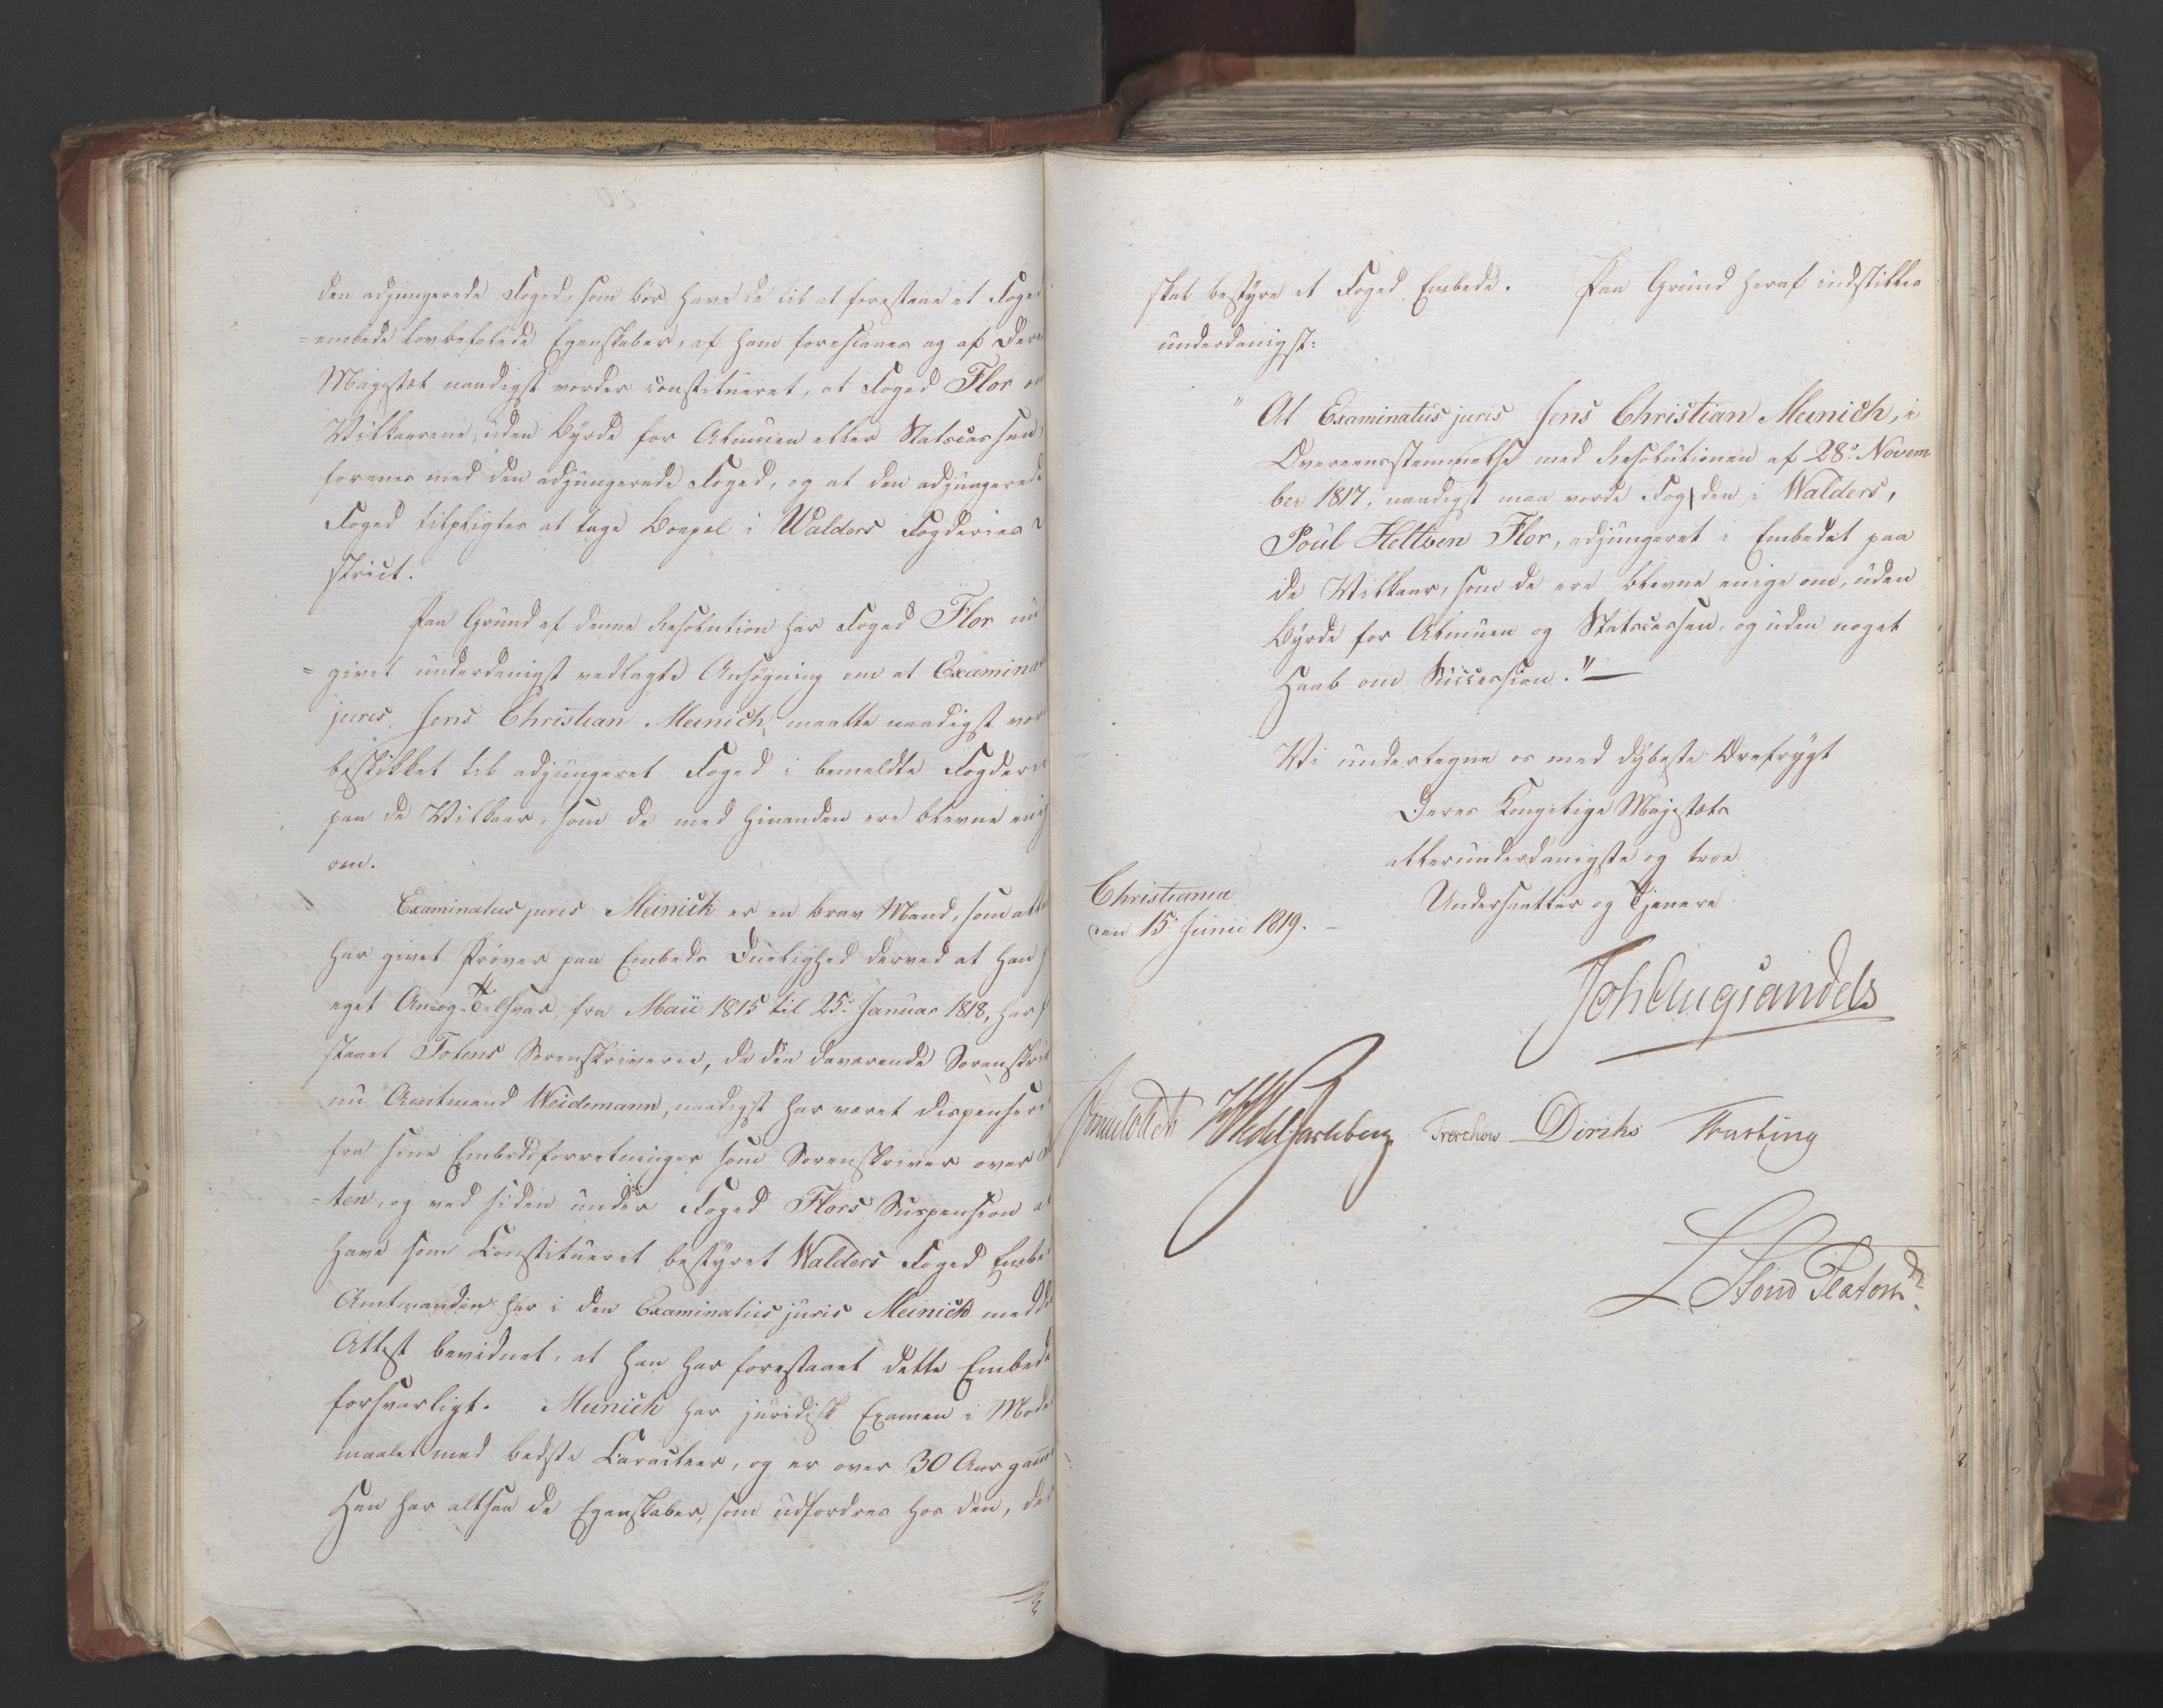 den adjungerede Foged, som bør have de til at forestaae et Foged
=embede lovbefalede Egenskaber, af ham foreslaaes og af Deres
Majestæt naadigst vorder constitueret, at Foged Flor om
Vilkaarene, uden Byrde for Almuen eller Statscassen,
forenes med den adjungerede Foged, og at den adjungerede
Foged tilpligtes at tage Boepel i Walders Fogderies
strict.
Paa Grund af denne Resolution har Foged Flor nu
=givet underdanigst vedlagte Ansøgning om at Examinat
juris, Jens Christian Meinich, maatte naadigst vor
beskikket til adjungeret Foged i bemeldte Fogderie
paa de Vilkaar, som de med hinanden ere blevne enig
om.
Examinatus juris Meinich er en brav Mand, som alle
har givet Prøver paa Embeds Duelighed derved at han
eget An- og Tilsvar, fra Maii 1815 til 25. Januar 1818, har
staaet Totens Sorenskriverie, da den daværende Sorenskri
nu Amtmand Weidemann, naadigst har været dispensere
fra sine Embedsforretninger som Sorenskriver over
=ten, og ved siden under Foged Flors Suspension at
have som Constitueret bestyret Walders Foged Embe
Amtmanden har i den Examinatus juris Meinich medd
Attest bevidnet, at han har forestaaet dette Embede
forsvarligt. Meinich har juridisk Examen i Moders
maalet med bedste Caracteer, og er over 30 Aar gam
Han har altsaa de Egenskaber, som udfordres hos den, der
skal bestyre et Foged Embede. Paa Grund heraf indstilles
underdanigst:
"At Examinatus juris Jens Christian Meinich, i
Overeensstemmelse med Resolutionen af 28. Novem
ber 1817, naadigst maa vorde Fogden i Walders,
Poul Heltven Flor, adjungeret i Embedet paa
de Vilkaar, som de ere blevne enige om, uden
Byrde for Almuen og Statscassen, og uden noget
Haab om Succession."
Vi undertegne os med dybeste Ærefrygt
Deres Kongelige Majestæts
allerunderdanigste og troe
Undersaatter og Tjenere
Christiania
den 15. Junii 1819.
Joh Aug Sandels
Sommerfeldt HWedelJarlsberg Treschow Diriks Fasting
L Stoud Platou